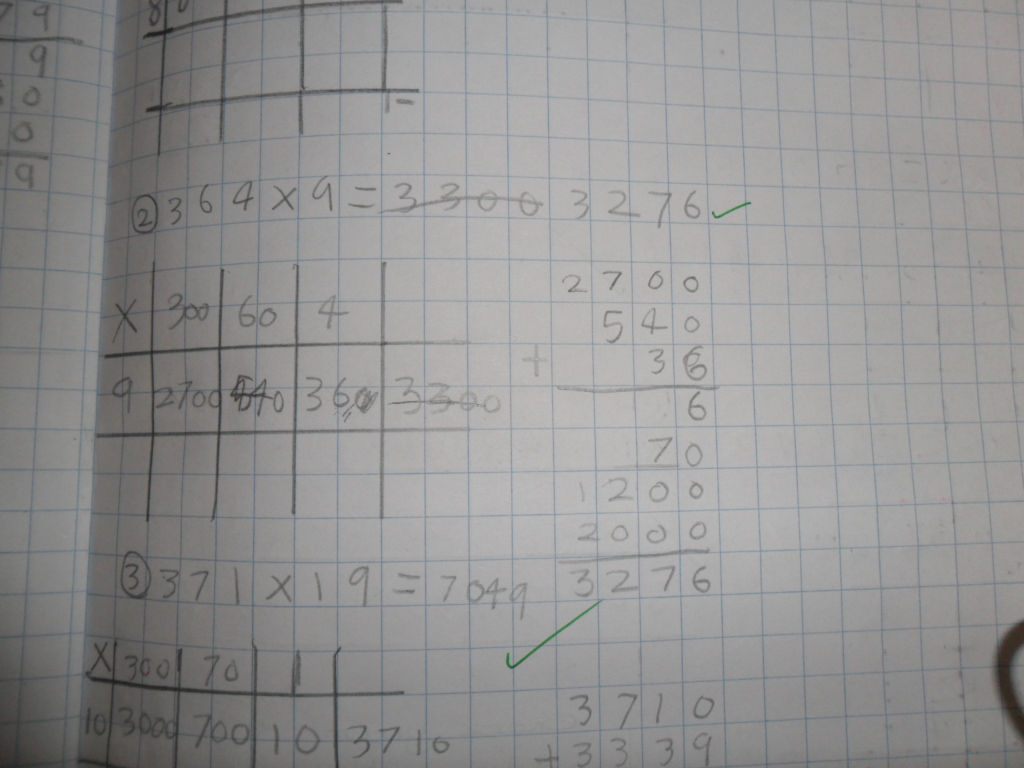 79
9
0
0
9
② 364 × 9 = 3300 3276
× 300 60 4
9 2700 540 360 3300
2700
540
+ 36
6
70
1200
2000
3276
③ 371 × 19 = 7049
× 300 70 1
10 3000 700 10 3710
3710
+ 3339